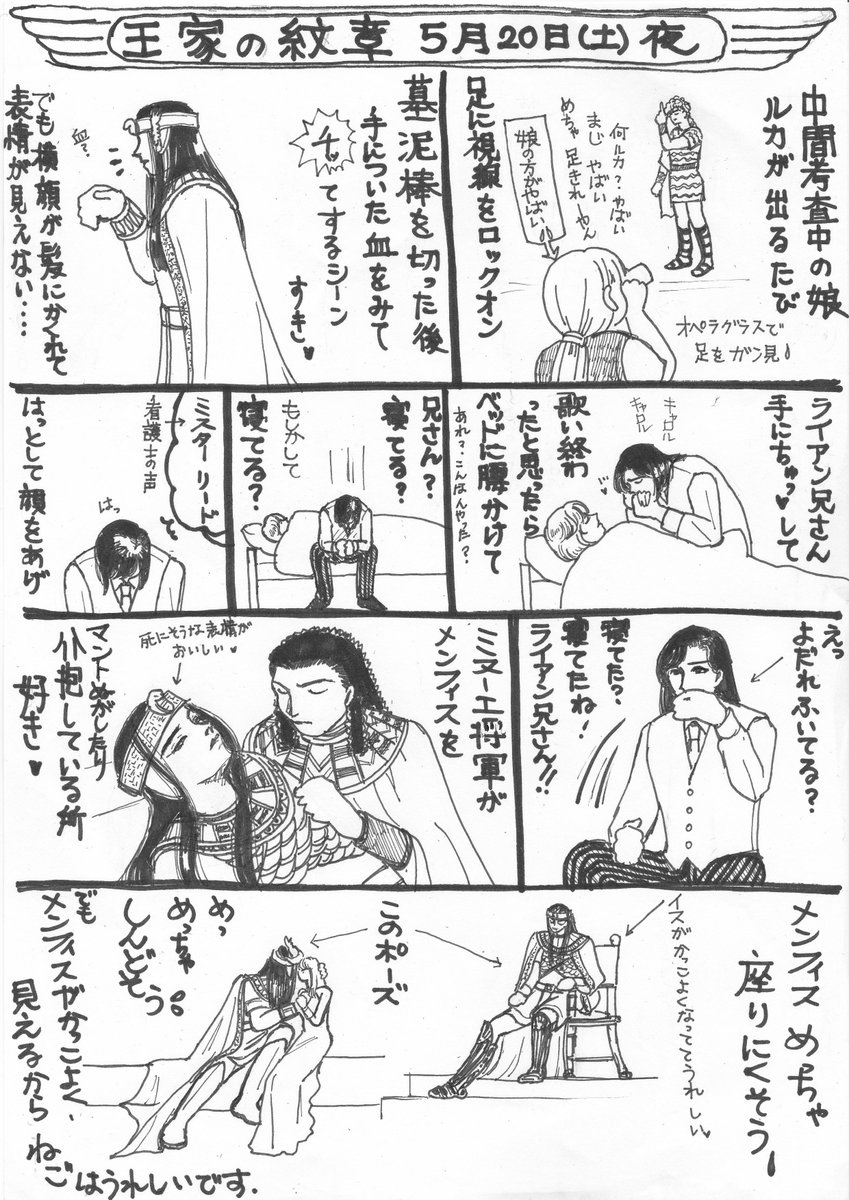 王家の紋章 5月20日(土)夜
中間考査中の娘
ルカが出るたび
足に視線をロックオン
何ルカ?やばい
まじ やばい
めちゃ 足きれーやん
娘の方がやばい
オペラグラスで
足をガン見!
墓泥棒を切った後
手についた血をみて
チッ
てするシーン
すき♥
血?
でも横顔が髪にかくれて
表情が見えない‥‥
ライアン兄さん
手にちゅっ♥して
キャロル
キャロル
歌い終わ
ったと思ったら
ベッドに腰かけて
あれ?こんなんやった?
兄さん?
寝てる?
もしかして
寝てる?
ミスターリード
看護士の声
はっとして顔をあげ
はっ
えっ
よだれふいてる?
寝てた?
寝てたね!
ライアン兄さん!!
ミヌーエ将軍が
メンフィスを
死にそうな表情が
おいしい♥
マントぬがしたり
介抱している所
好き♥
メンフィス めっちゃ
座りにくそう!
イスがかっこよくなっててうれしい♥
このポーズ
めっ
めっちゃ
しんどそう。
でも
メンフィスがかっこよく、
見えるから ねご
はうれしいです.